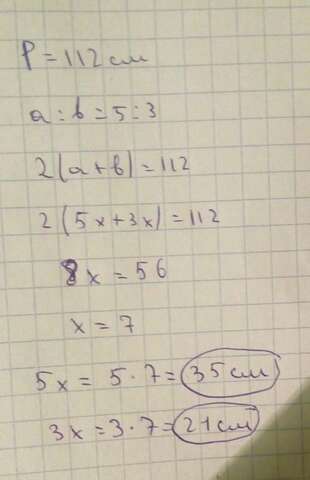 P = 112 см
a : b = 5 : 3
2(a+b) = 112
2(5x+3x) = 112
8x = 56
x = 7
5x = 5 · 7 = 35 см
3x = 3 · 7 = 21 см